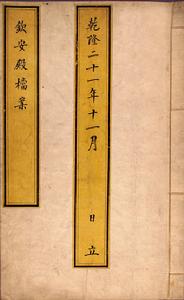 乾隆二十一年十一月 日立
欽安殿檔案